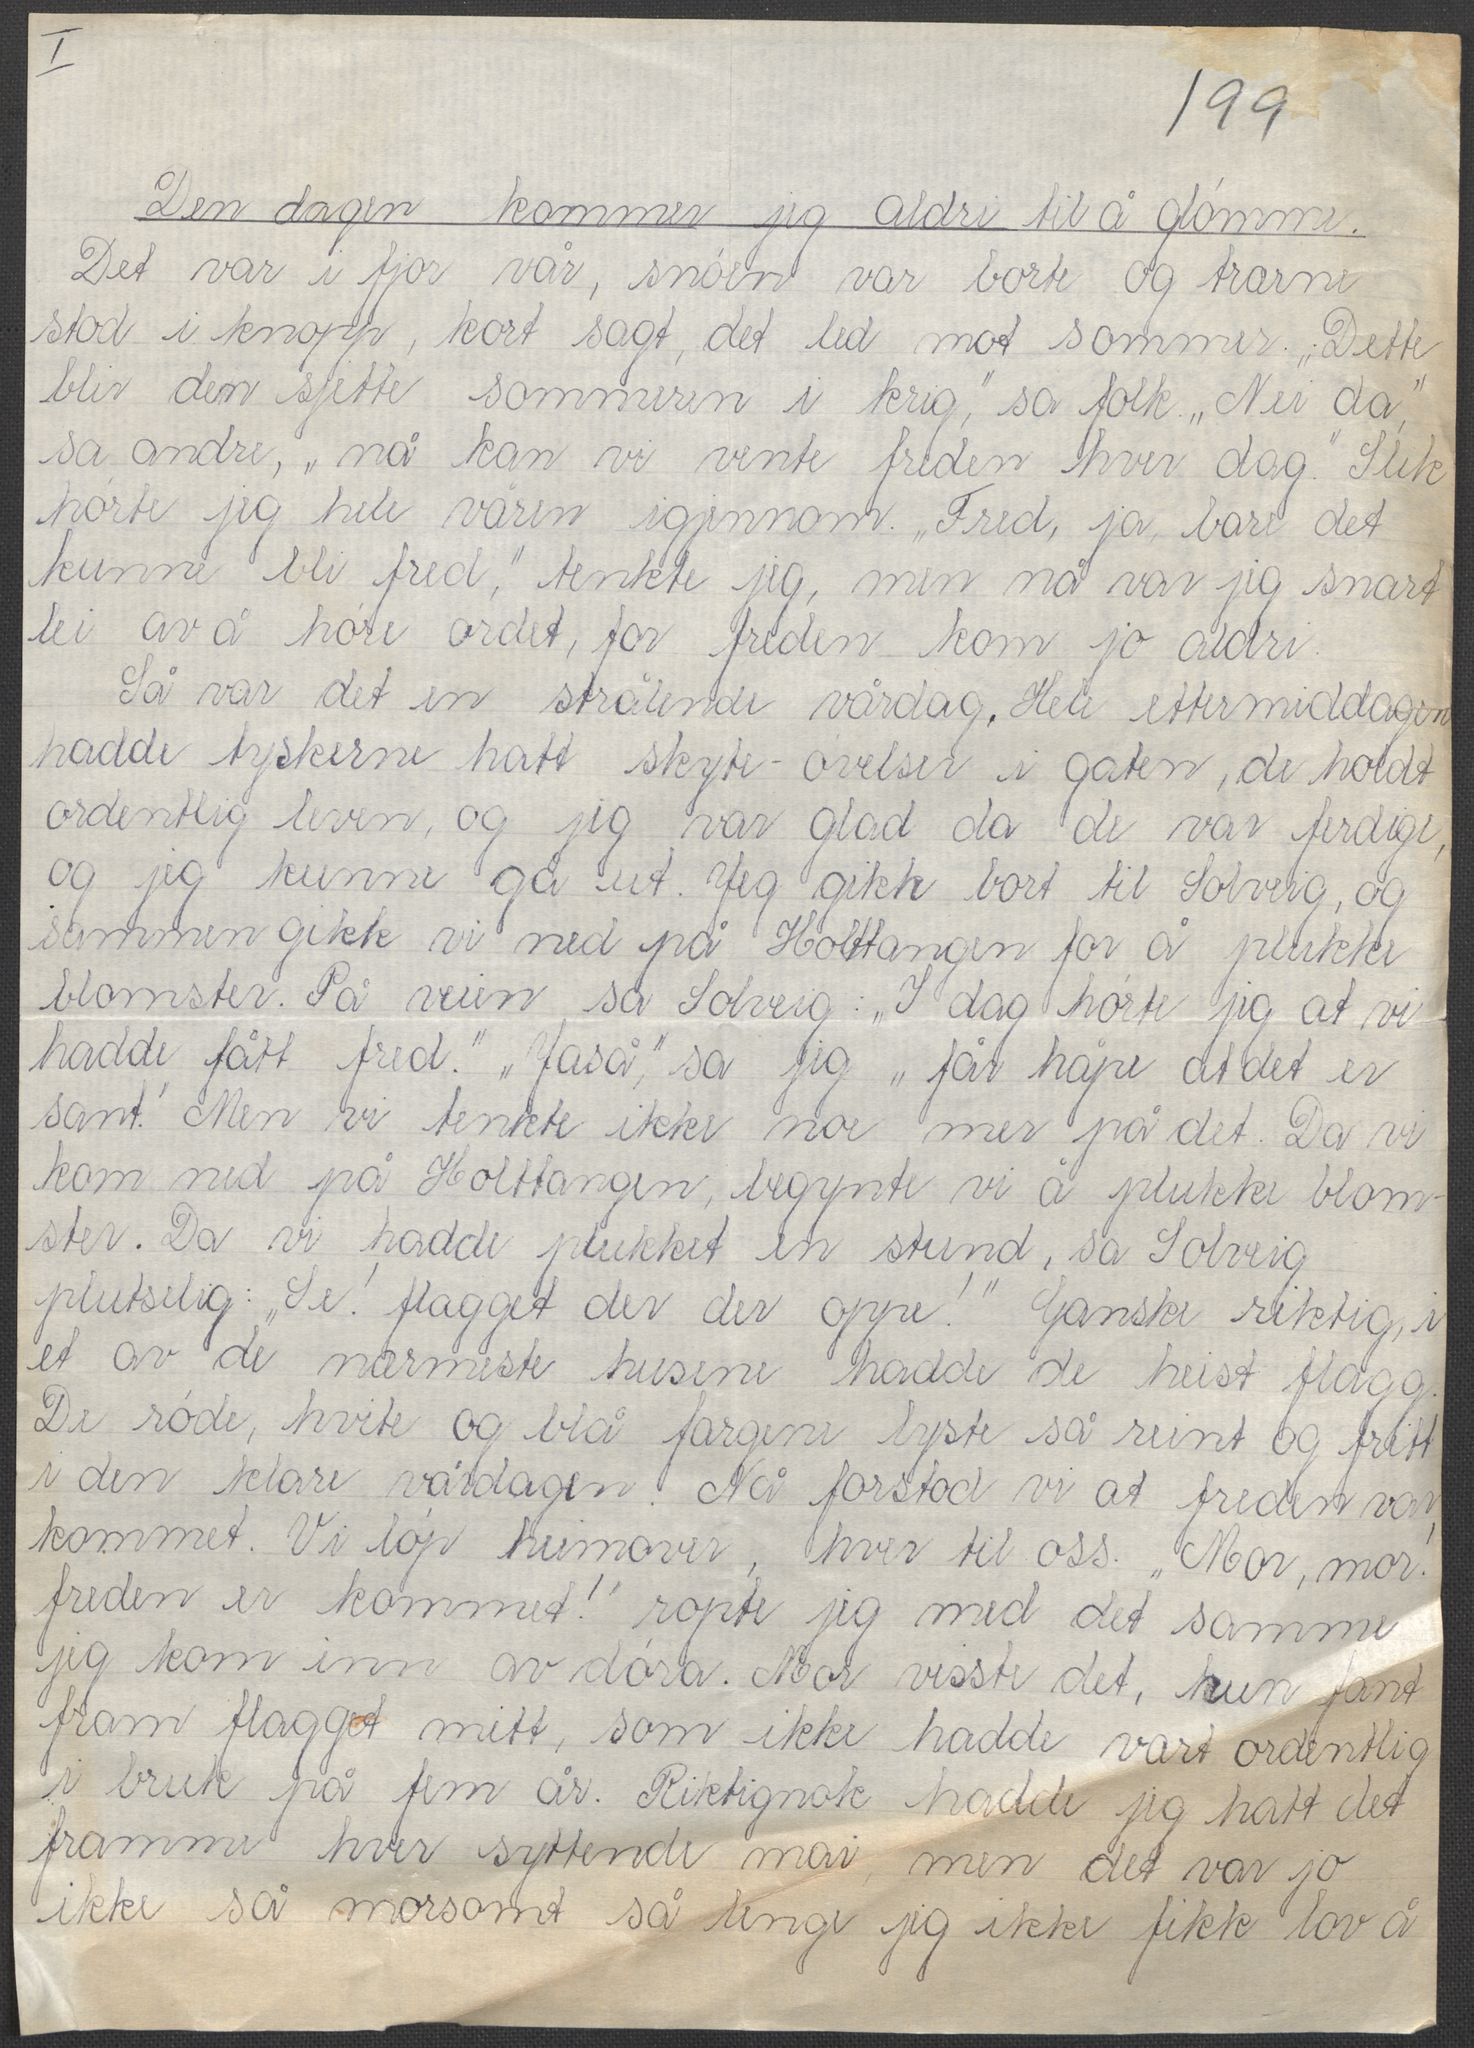 I
199
Den dagen kommer jeg aldri til å glómme.
Det var i fjor vår, snóen var borte og trærne
stod i knopp, kort sagt, det led mot sommer. „Dette
blir den sjette sommeren i krig," sa folk. „Nei da,"
sa andre, „nå kan vi vente freden hver dag." Slik
hórte jeg hele våren igjennom. „Fred, ja, bare det
kunne bli fred," tenkte jeg, men nå var jeg snart
lei av å hóre ordet, for freden kom jo aldri.
Så var det en strålende vårdag. Hele ettermiddagen
hadde tyskerne hatt skyte-óvelser i gaten, de holdt
ordentlig leven, og jeg var glad da de var ferdige,
og jeg kunne gå ut. Jeg gikk bort til Solveig, og
sammen gikk vi ned på Holttangen for å plukke
blomster. På veien sa Solveig: „I dag hórte jeg at vi
hadde fått fred." „Jaså," sa jeg „får håpe at det er
sant." Men vi tenkte ikke noe mer på det. Da vi
kom ned på Holttangen, begynte vi å plukke blom-
ster. Da vi hadde plukket en stund, sa Solveig
plutselig: „Se! flagget der der oppe!" Ganske riktig, i
et av de nærmeste husene hadde de heist flagg.
De róde, hvite og blå fargene lyste så reint og fritt
i den klare vårdagen. Nå forstod vi at freden var
kommet. Vi lóp heimover, hver til oss. „Mor, mor!
freden er kommet!" ropte jeg med det samme
jeg kom inn av dóra. Mor visste det, hun fant
fram flagget mitt, som ikke hadde vært ordentlig
i bruk på fem år. Riktignok hadde jeg hatt det
framme hver syttende mai, men det var jo
ikke så morsomt så lenge jeg ikke fikk lov å